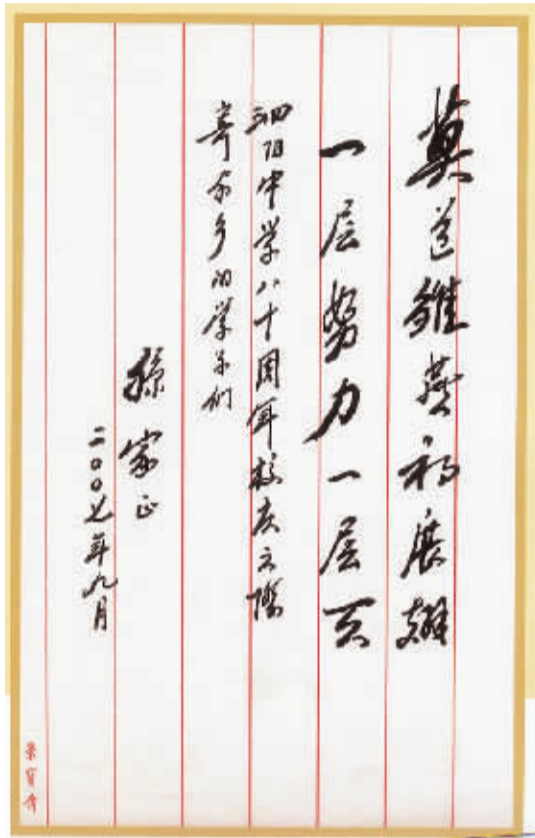 莫道雏燕初展翅
一层努力一层天
泗阳中学八十周年校庆之际
寄家乡的学子们
孙家正
二〇〇七年九月
荣宝斋